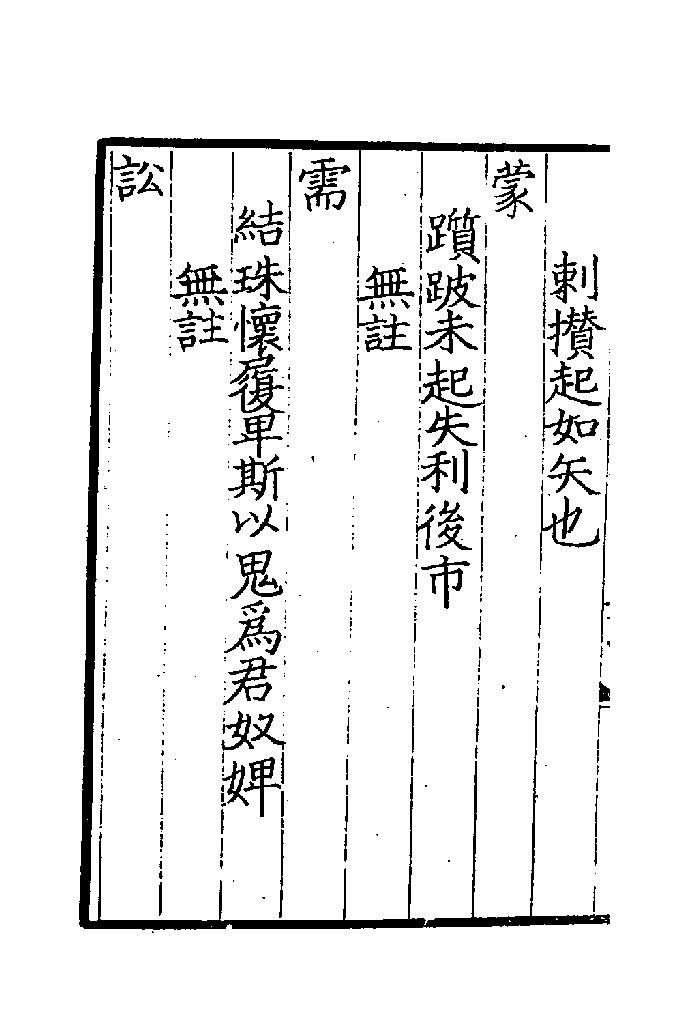 刺攢起如矢也
蒙
躓跛未起失利後市
無註
需
結珠懷履卑斯以鬼爲君奴婢
無註
訟